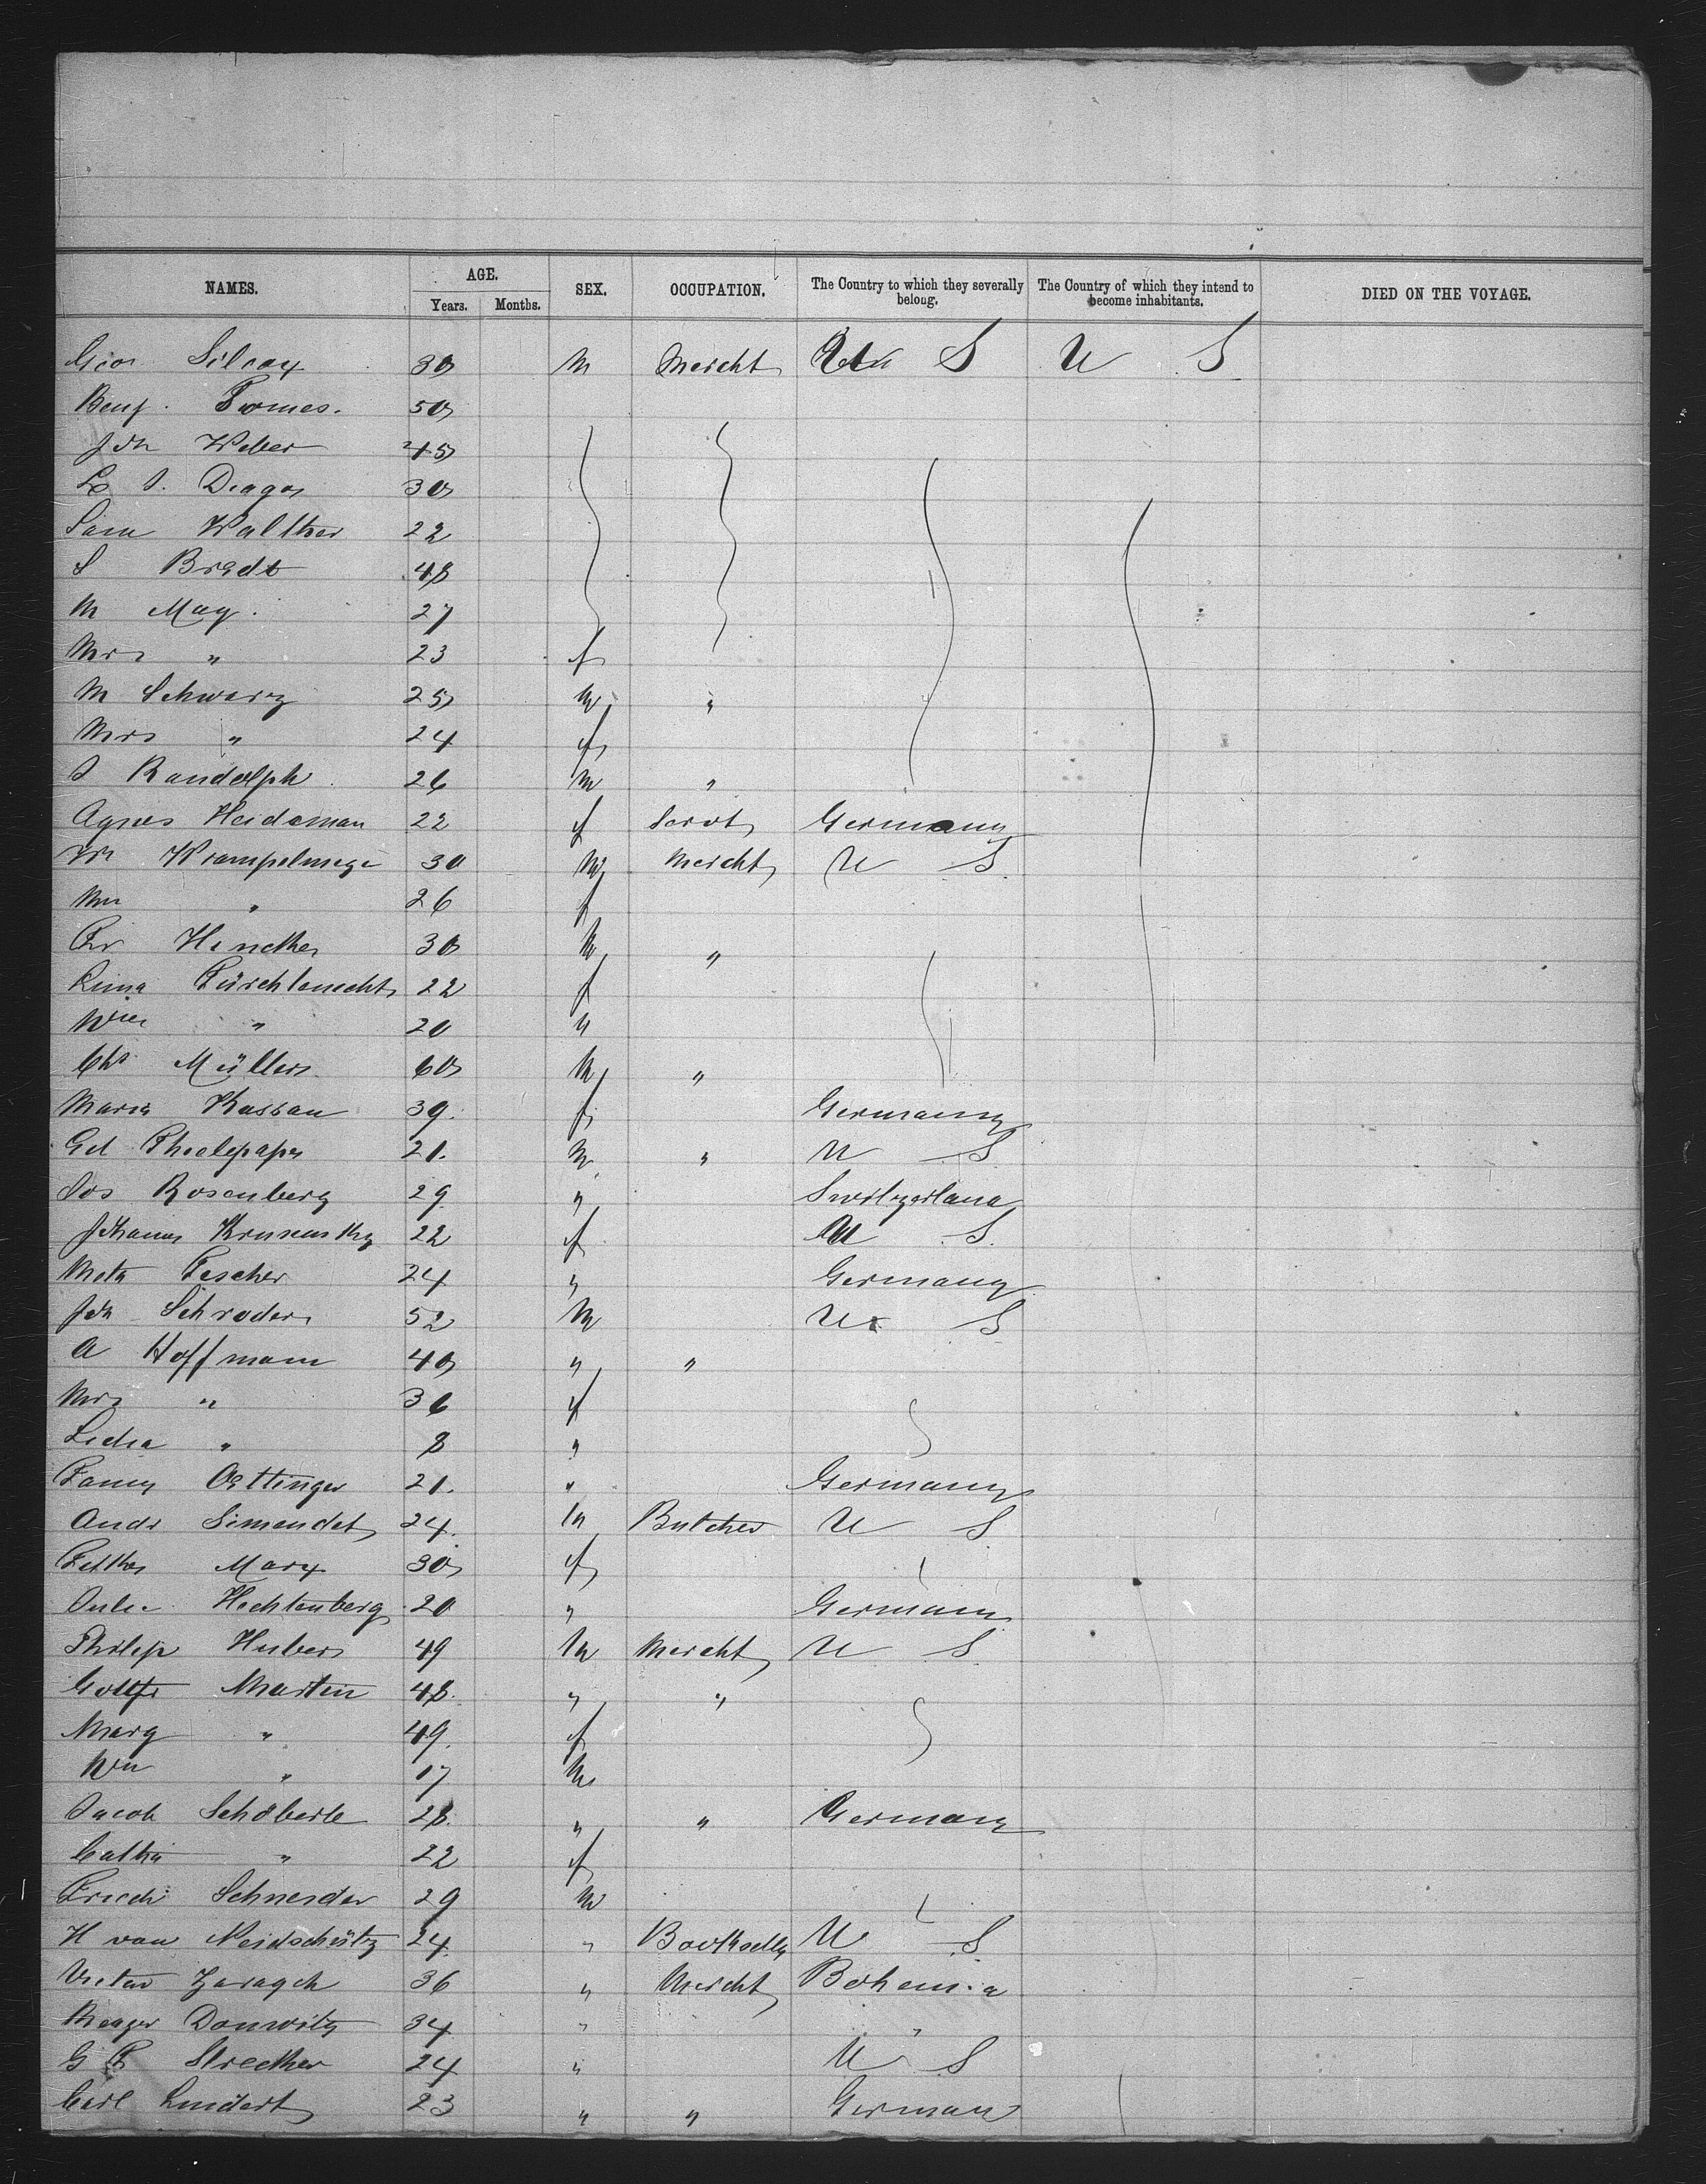 NAMES. AGE. Years. Months. SEX. OCCUPATION. The Country to which they severally belong. The Country of which they intend to become inhabitants. DIED ON THE VOYAGE.
Geo Silcox 30 M Mercht U S U S
Benj. Tomes. 50
Joh Weber 45
30
Sam Walther 22
S Bradt 48
M May. 27
Mrs " 23 f
M Schwarz 25 M "
Mrs " 24 f
J Randolph 26 M "
Agnes Heideman 22 f Servt Germany
30 M Mercht U S
Mrs " 26 f
Fr Hencken 30 M "
22 f
" 20 "
Chs Müller 60 M "
Maria Kassau 39. f Germany
21. M " U S
Jos Rosenberg 29 " Switzerland
22 f U S
Meta Fescher 24 " Germany
Joh Schroder 52 M U S
A Hoffmann 40 " "
Mrs " 36 f
Lidia " 8 "
Fanny Oettinger 21. " Germany
Andr Simendet 24. M Butcher U S
Marx 30 f
Hechtenberg 20 " Germany
Philip Huber 49 M Mercht U S
Gottfr Martin 48. " "
Marg " 49. f
Wm " 17 M
Jacob Schöberle 28. " " Germany
Catha " 22 f
Friedr Schneider 29 M
H von Neidschütz 24. " Bookselly U S
Victor Zaragch 36 " Mercht Bohemia
Meager Donwitz 34 " "
G F Strecker 24 " U S
Carl Lindert 23 " " German